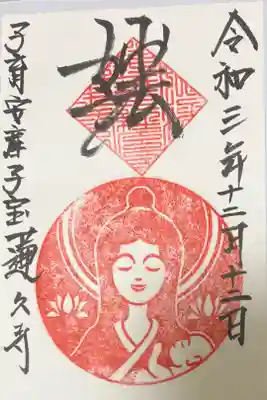 令和三年十二月十二日
子育安産子宝蓮久寺